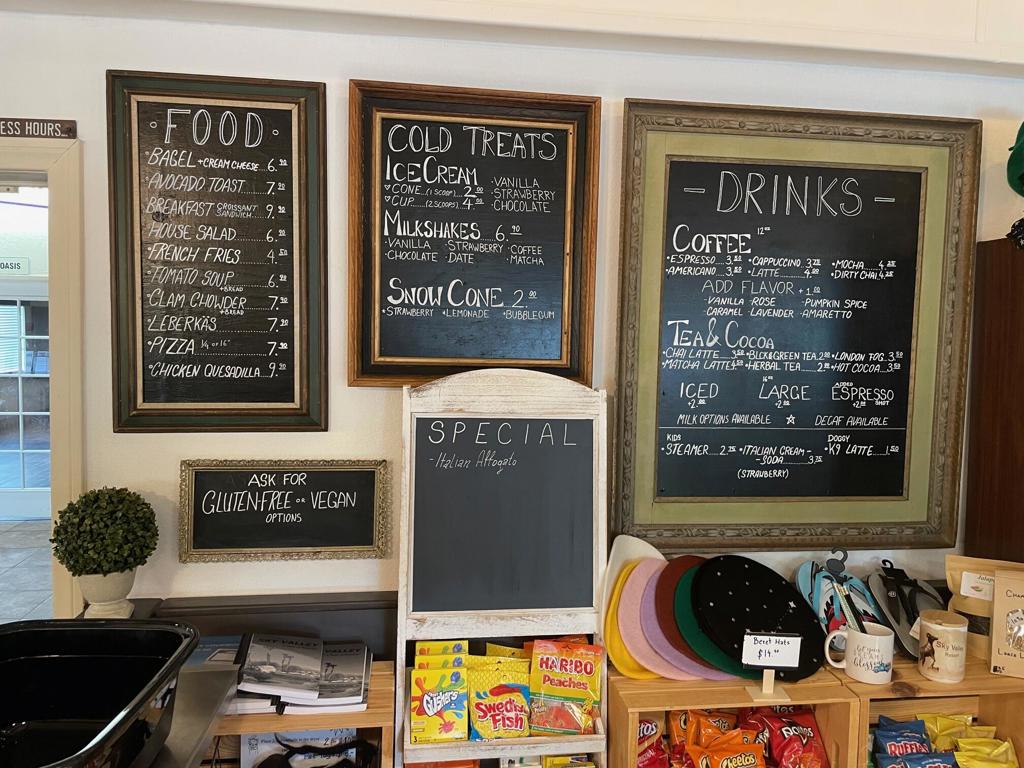 ESS HOURS...
OASIS
FOOD
BAGEL + CREAM CHEESE 6.90
AVOCADO TOAST 7.90
BREAKFAST CROISSANT SANDWICH 9.90
HOUSE SALAD 6.90
FRENCH FRIES 4.50
TOMATO SOUP +BREAD 6.90
CLAM CHOWDER +BREAD 7.90
LEBERKÄS 7.90
PIZZA 1/4 or 16" 7.90
CHICKEN QUESADILLA 9.90
COLD TREATS
ICE CREAM
CONE...(1 SCOOP) 2.00
CUP...(2 SCOOPS) 4.00
·VANILLA
·STRAWBERRY
·CHOCOLATE
MILKSHAKES 6.90
·VANILLA ·STRAWBERRY ·COFFEE
·CHOCOLATE ·DATE ·MATCHA
SNOW CONE 2.00
·STRAWBERRY ·LEMONADE ·BUBBLEGUM
- DRINKS -
COFFEE 12oz
·ESPRESSO...3.00 ·CAPPUCCINO 3.75 ·MOCHA...4.25
·AMERICANO...3.50 ·LATTE...4.00 ·DIRTY CHAI 4.25
ADD FLAVOR +1.00
·VANILLA ·ROSE ·PUMPKIN SPICE
·CARAMEL ·LAVENDER ·AMARETTO
TEA & COCOA
·CHAI LATTE...3.50 ·BLCK&GREEN TEA 2.00 ·LONDON FOG 3.50
·MATCHA LATTE 4.50 ·HERBAL TEA...2.00 ·HOT COCOA...3.50
ICED +2.00
16oz LARGE +2.00
ADDED ESPRESSO SHOT +2.00
MILK OPTIONS AVAILABLE ☆ DECAF AVAILABLE
KIDS
·STEAMER...2.75 ·ITALIAN CREAM-
-SODA...3.75
(STRAWBERRY)
DOGGY
·K9 LATTE...1.50
ASK FOR
GLUTEN-FREE OR VEGAN
OPTIONS
SPECIAL
-Italian Affogato
Beret Hats
$14.00
SKY VALLEY
SKY VALLEY
Gushers
3
Swedish Fish
HARIBO
Peaches
Cheetos
Cheetos
Doritos
RUFFLES
Sky Valley